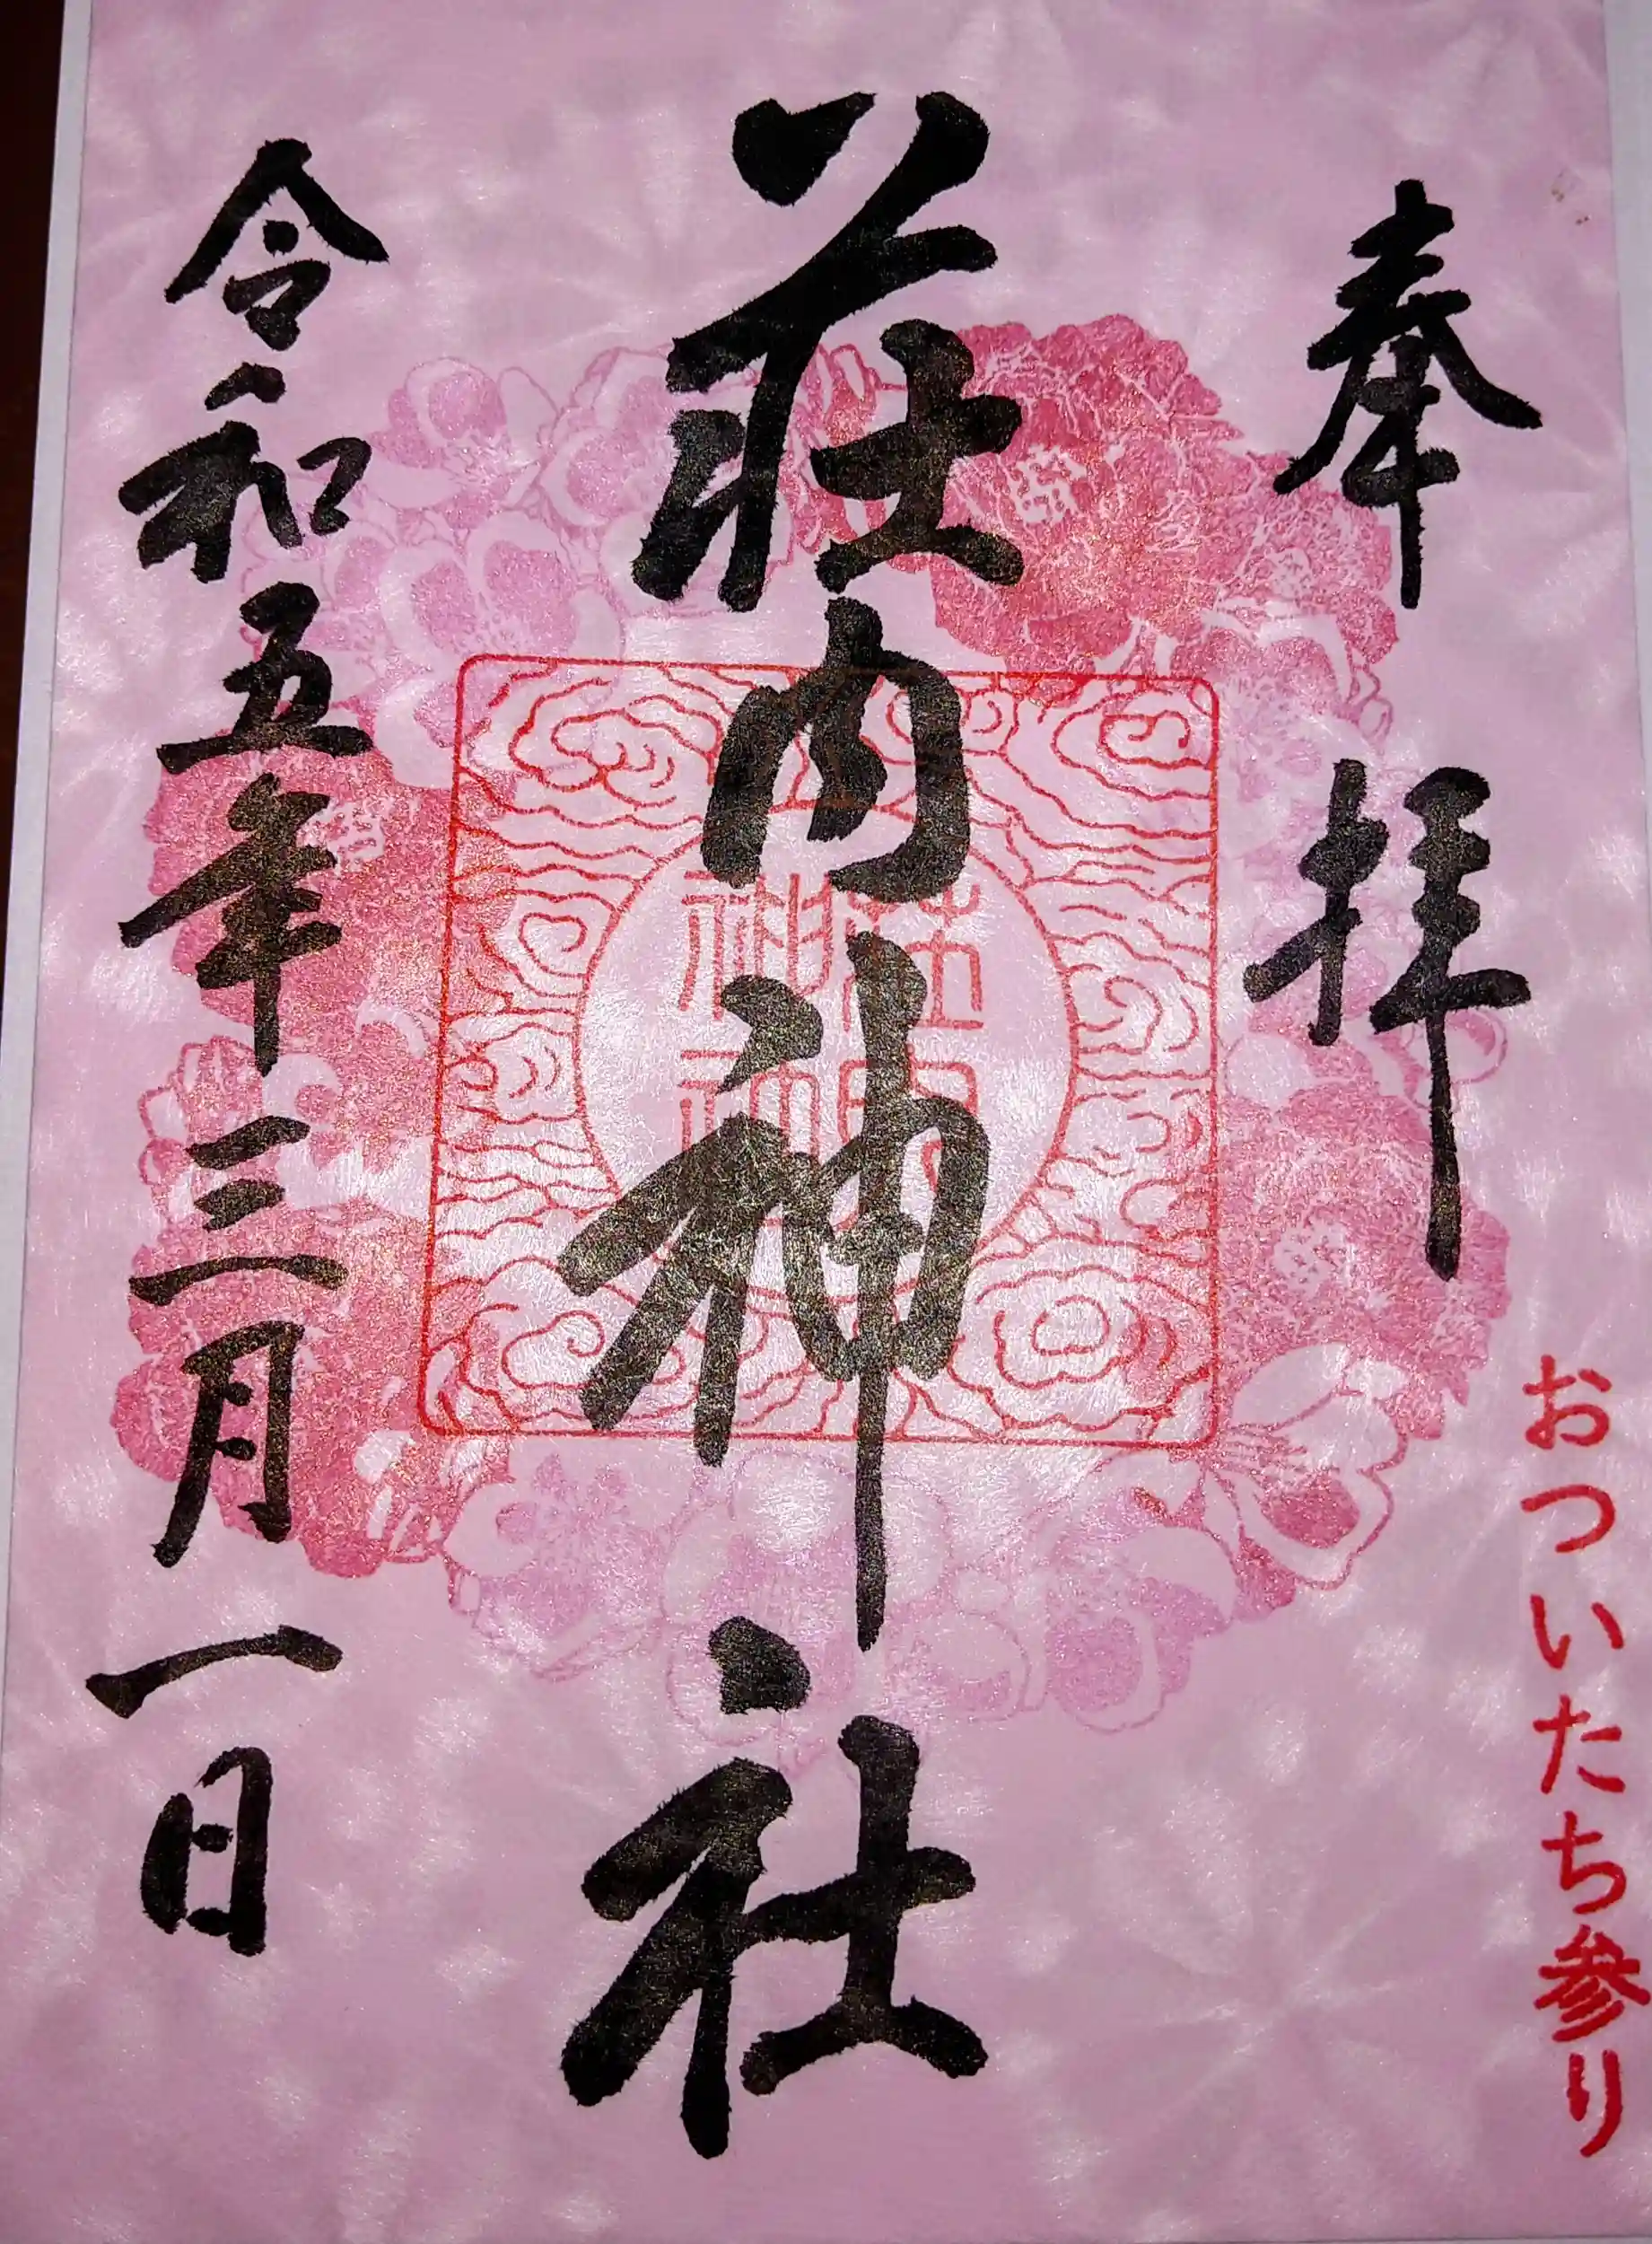 奉拝
おついたち参り
荘内神社
荘内
神社
令和五年三月一日